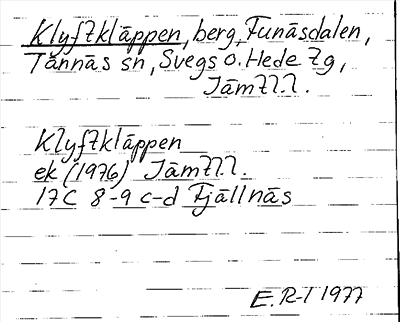 Klyftkläppen, berg, Funäsdalen,
Tännäs sn, Svegs o. Hede tg,
Jämtl.l.
Klyftkläppen
ek (1976) Jämtl.l.
17C 8-9 c-d Fjällnäs
E. R-I 1977